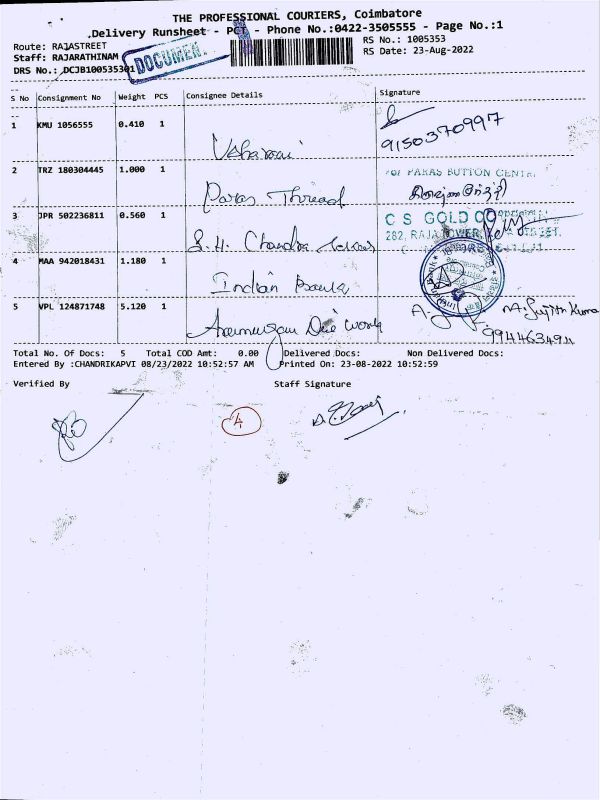 THE PROFESSIONAL COURIERS, Coimbatore
Delivery Runsheet - PCT - Phone No.:0422-3505555 - Page No.:1
Route: RAJASTREET
RS No.: 1005353
Staff: RAJARATHINAM
RS Date: 23-Aug-2022
DOCUMEN
DRS No.: DCJB100535301
S No Consignment No Weight PCS Consignee Details Signature
1 KMU 1056555 0.410 1
9150370997
2 TRZ 180304445 1.000 1 Paras Thread
For PARAS BUTTON CENTRE
3 JPR 502236811 0.560 1 S.H. Chandra
C S GOLD
282, RAJA
4 MAA 942018431 1.180 1 Indian Bank
5 VPL 124871748 5.120 1 Arumugam Die Work
Total No. Of Docs: 5 Total COD Amt: 0.00 Delivered Docs: Non Delivered Docs:
Entered By :CHANDRIKAPVI 08/23/2022 10:52:57 AM Printed On: 23-08-2022 10:52:59
Verified By Staff Signature
4